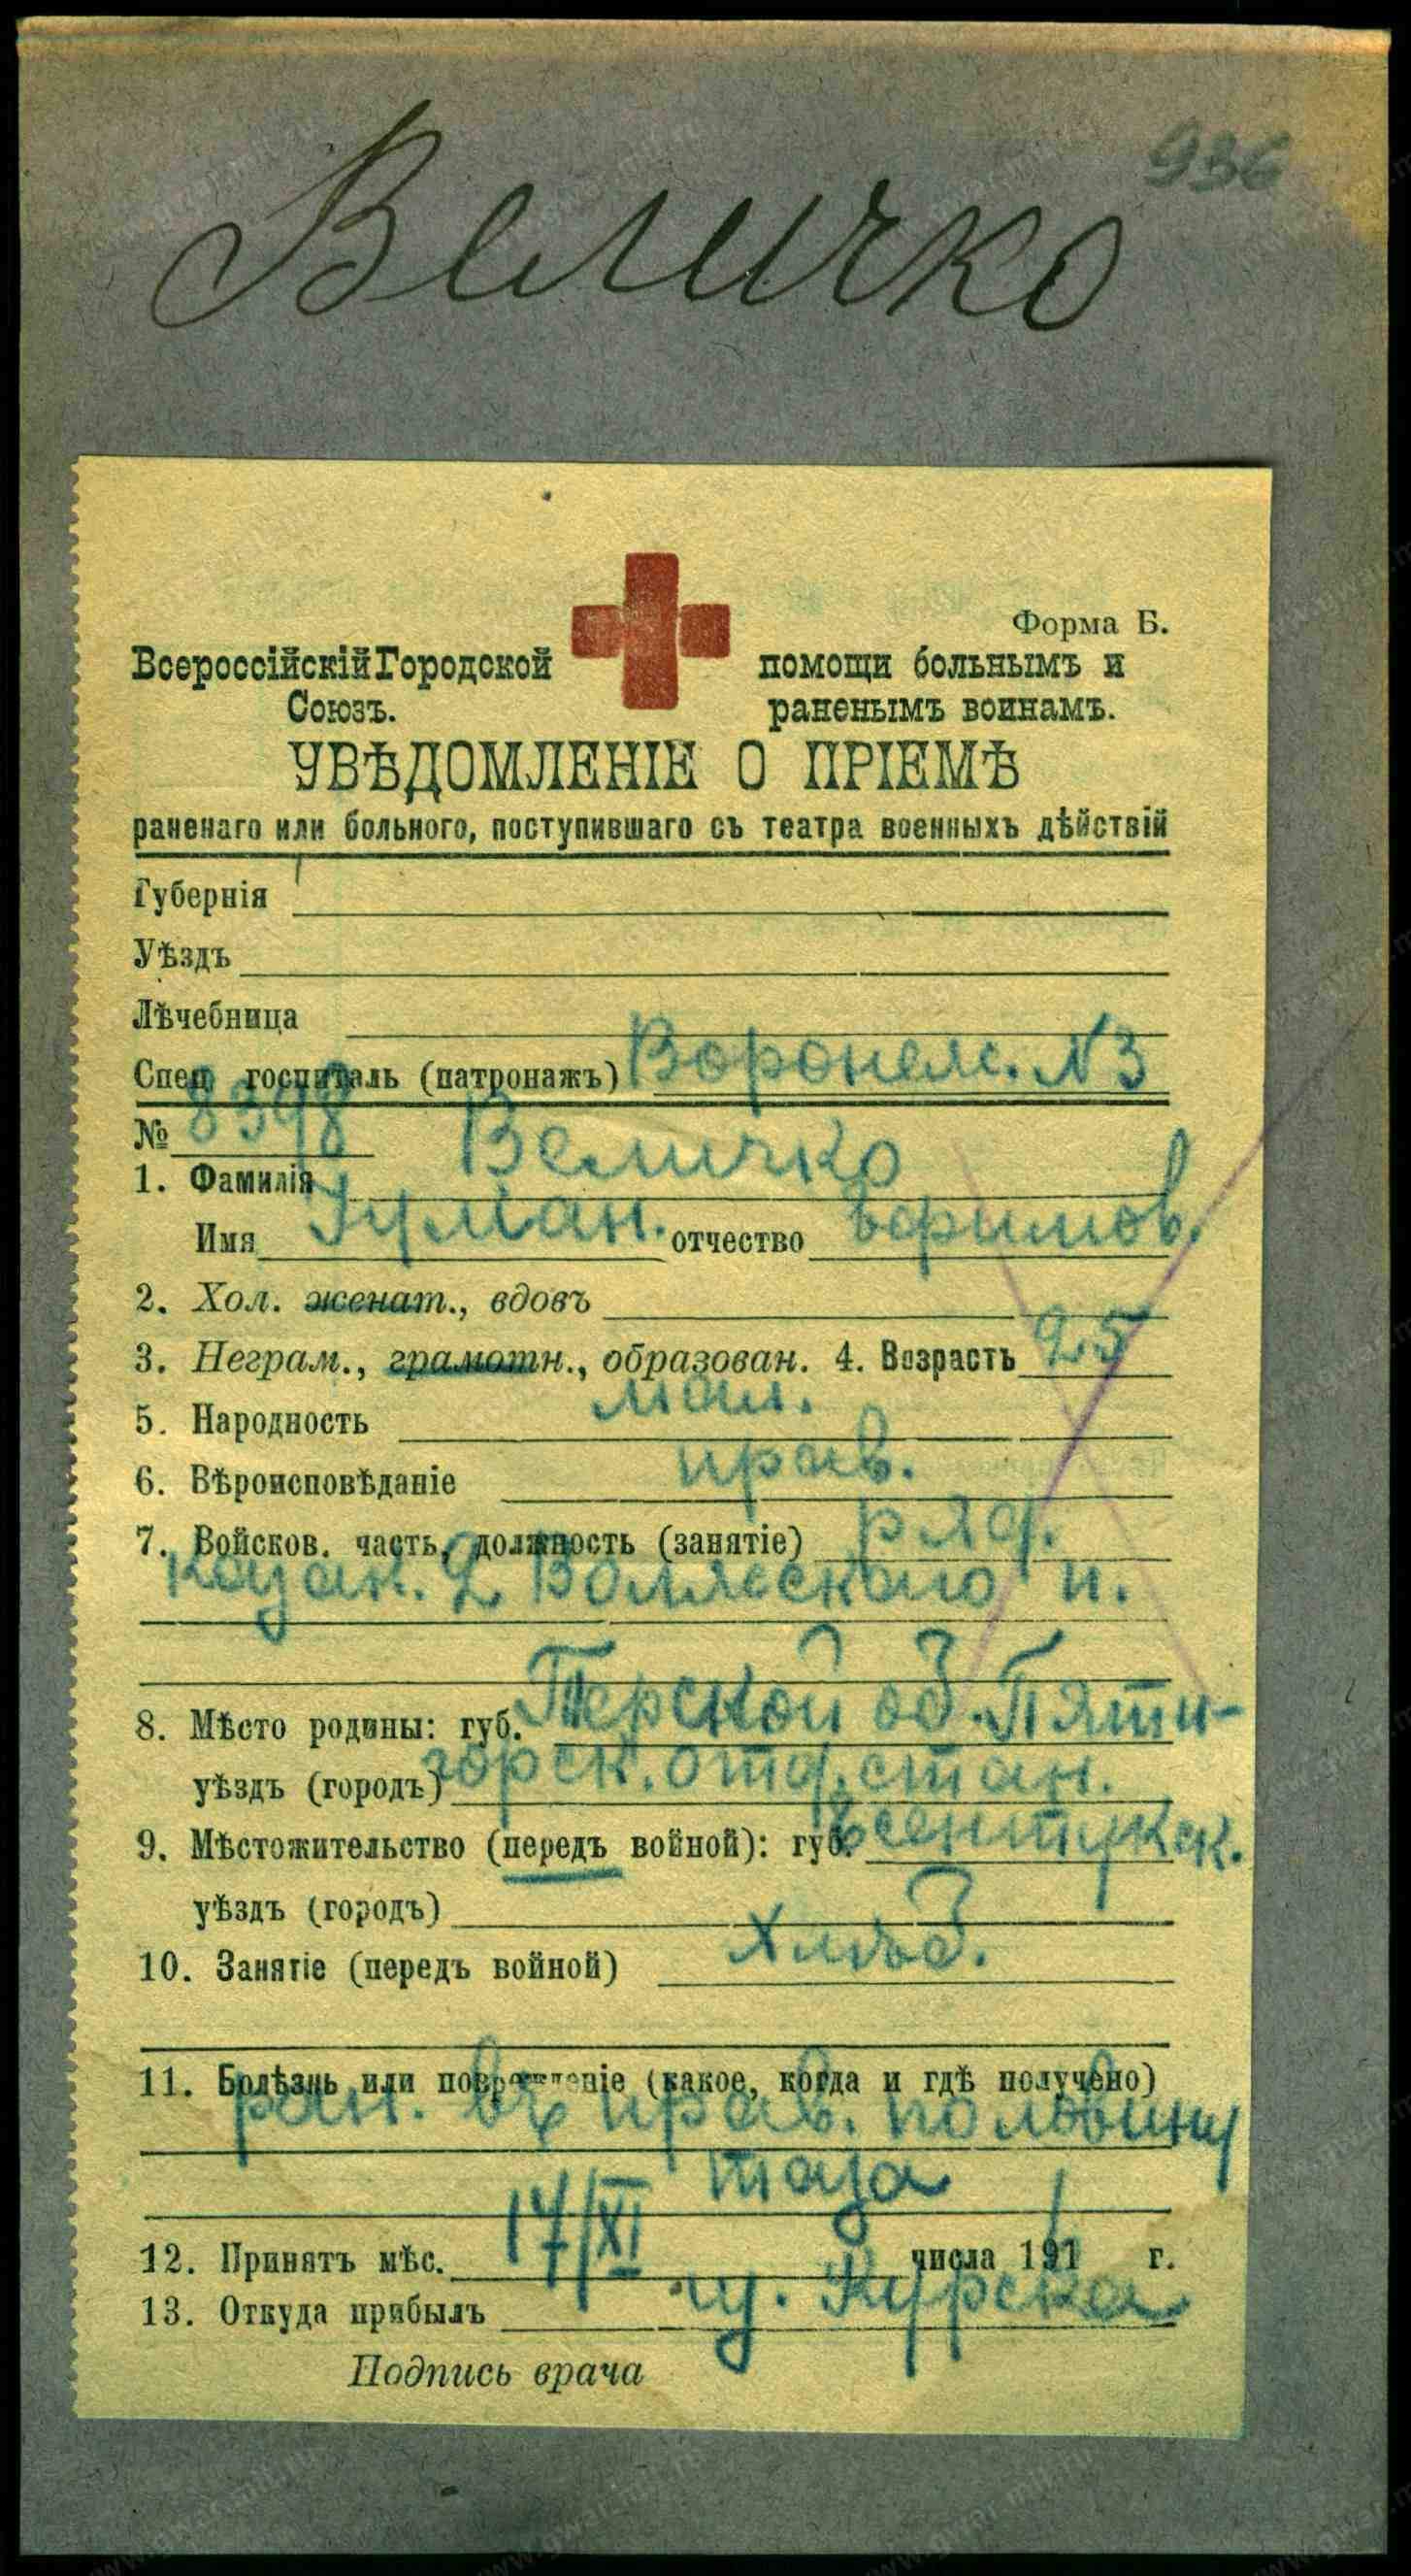 936
Величко
Форма Б.
Всероссійскій Городской помощи больнымъ и
Союзъ. раненымъ воинамъ.
УВѢДОМЛЕНІЕ О ПРІЕМѢ
раненаго или больного, поступившаго съ театра военныхъ дѣйствій
Губернія
Уѣздъ
Лѣчебница
Спец. госпиталь (патронажъ) Воронеж. №3
№ 8398
1. Фамилія Величко
Имя отчество Ефимов.
2. Хол. женат., вдовъ
3. Неграм., грамотн., образован. 4. Возрасть 25
5. Народность мал.
6. Вѣроисповѣданіе прав.
7. Войсков. часть, должность (занятіе) ряд.
казак. 2 Волжского п.
8. Мѣсто родины: губ. Терской об. Пяти-
уѣздъ (городъ) горск. отд. стан.
9. Мѣстожительство (передъ войной): губ. Есентукск.
уѣздъ (городъ)
10. Занятіе (передъ войной) Хлѣб.
11. Болѣзнь или поврежденіе (какое, когда и гдѣ получено)
ран. въ прав. половину
таза
12. Принятъ мѣс. 17/XI числа 191 г.
13. Откуда прибылъ из. Курска
Подпись врача